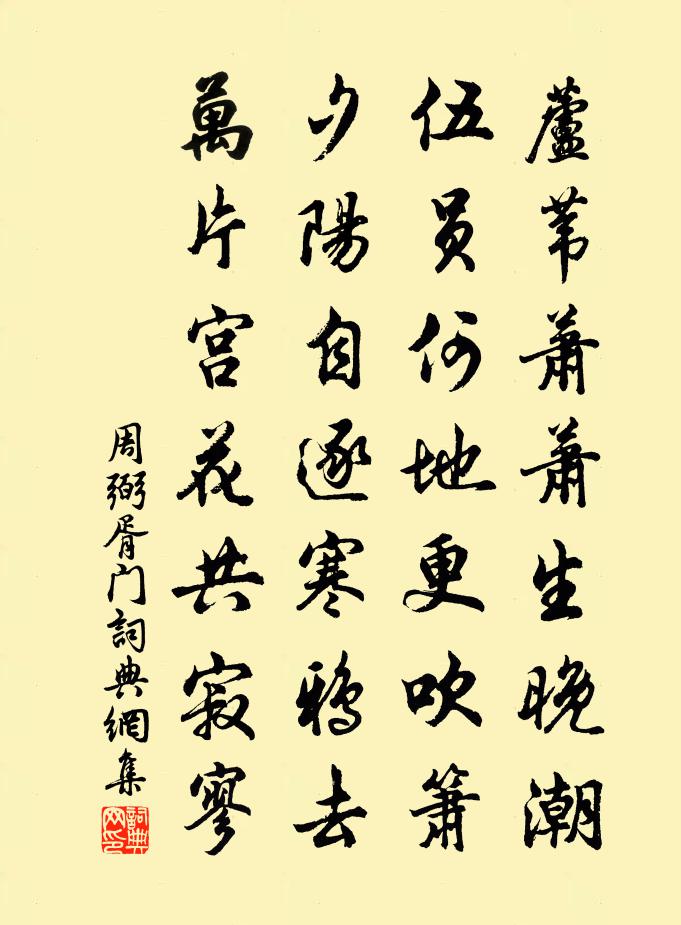 蘆葦蕭蕭生晚潮
伍員何地更吹簫
夕陽自逐寒鴉去
萬片宮花共寂寥
周弼胥门詞典網集
詞典网印